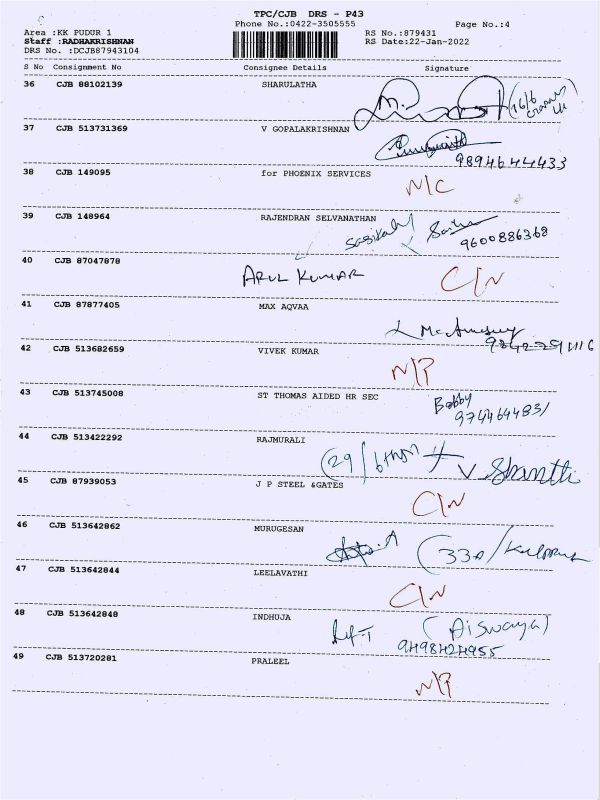 TPC/CJB DRS - P43
Phone No.:0422-3505555 Page No.:4
Area :KK PUDUR 1 RS No.:879431
Staff :RADHAKRISHNAN RS Date:22-Jan-2022
DRS No. :DCJB87943104
S No Consignment No Consignee Details Signature
36 CJB 88102139 SHARULATHA
37 CJB 513731369 V GOPALAKRISHNAN
9894644433
38 CJB 149095 for PHOENIX SERVICES
N/C
39 CJB 148964 RAJENDRAN SELVANATHAN
9600886368
40 CJB 87047878
ARUL KUMAR C/N
41 CJB 87877405 MAX AQVAA
42 CJB 513682659 VIVEK KUMAR
N/P
43 CJB 513745008 ST THOMAS AIDED HR SEC
Bobby
44 CJB 513422292 RAJMURALI
V Shanthi
45 CJB 87939053 J P STEEL &GATES
C/N
46 CJB 513642862 MURUGESAN
47 CJB 513642844 LEELAVATHI
C/N
48 CJB 513642848 INDHUJA
(Aiswaya)
9498424955
49 CJB 513720281 PRALEEL
N/P